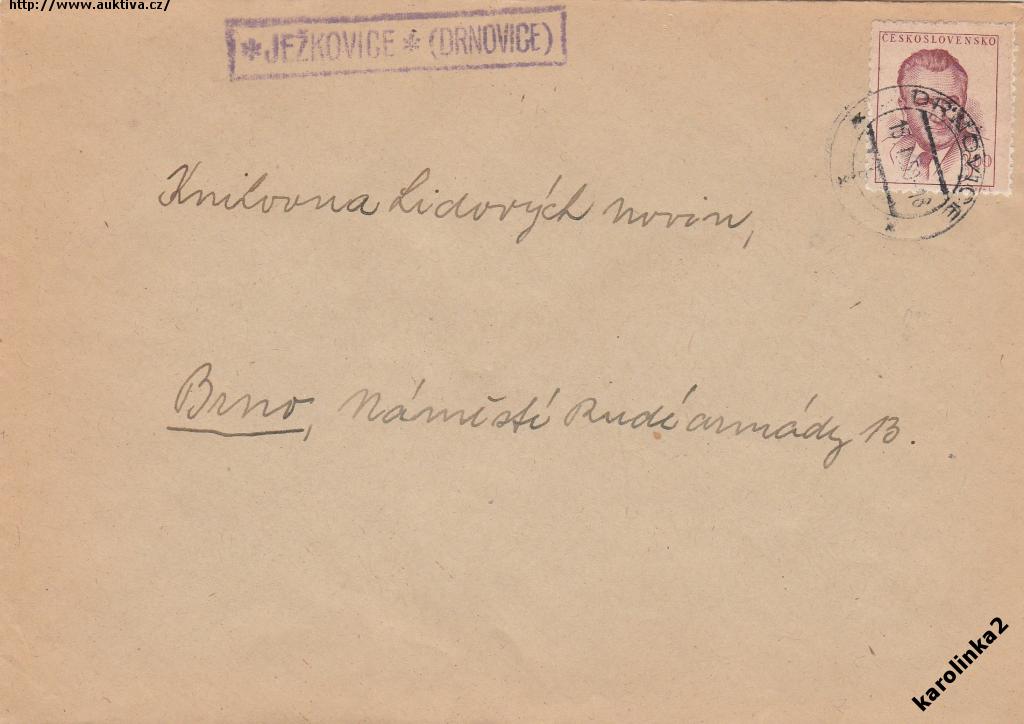 http://www.auktiva.cz/
*JEŽKOVICE * (DRNOVICE)
ČESKOSLOVENSKO
DRNOVICE
Knihovna Lidových novin,
Brno, Náměstí Rudé armády 13.
karolinka2